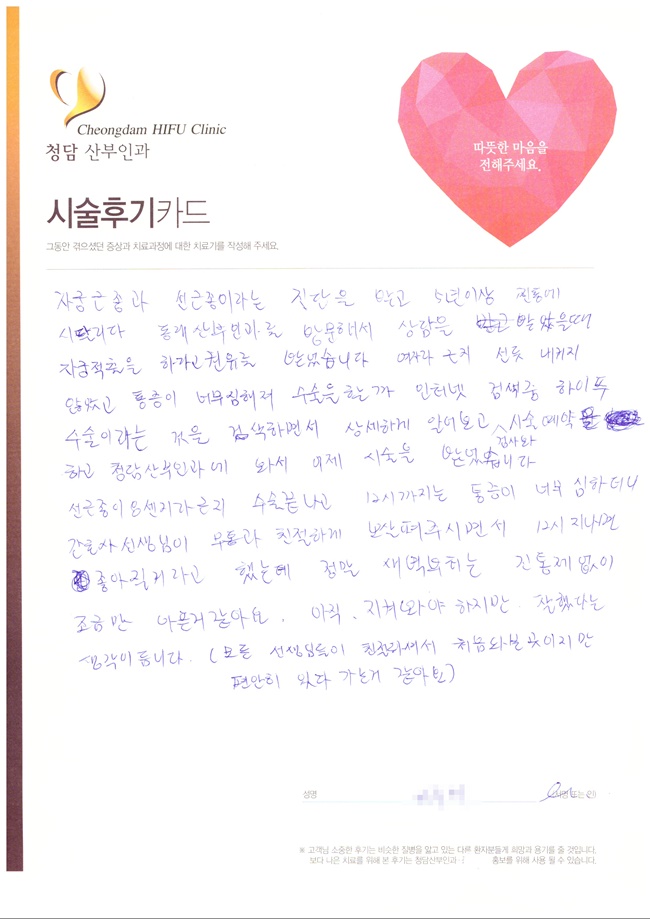 Cheongdam HIFU Clinic
청담 산부인과
따뜻한 마음을
전해주세요.
시술후기카드
그동안 겪으셨던 증상과 치료과정에 대한 치료기를 작성해 주세요.
자궁근종과 선근종이라는 진단을 받고 5년이상 찐통에
시달리다 동래산부인과를 방문해서 상담을 받았을때
자궁적출을 하라고 권유를 받았습니다 여자라 근지 선뜻 내키지
않았고 통증이 너무심해져 수술을 할까 인터넷 검색중 하이푸
수술이라는 것을 검색하면서 상세하게 알아보고 시술예약을
검사와
하고 청담산부인과에 와서 어제 시술을 받았습니다
선근종이 8센치라 근지 수술끝나고 12시까지는 통증이 너무 심하더니
간호사 선생님이 무통과 친절하게 보살펴주시면서 12시 지나면
좋아질거라고 했는데 정말 새벽부터는 진통제없이
조금만 아픈거같아요. 아직, 지켜봐야 하지만. 잘했다는
생각이듭니다. (모든 선생님들이 친절하셔서 처음와본 곳이지만
편안히 있다 가는거 같아요)
성명
(서명 또는 인)
※ 고객님 소중한 후기는 비슷한 질병을 앓고 있는 다른 환자분들게 희망과 용기를 줄 것입니다.
보다 나은 치료를 위해 본 후기는 청담산부인과 홍보를 위해 사용 될 수 있습니다.